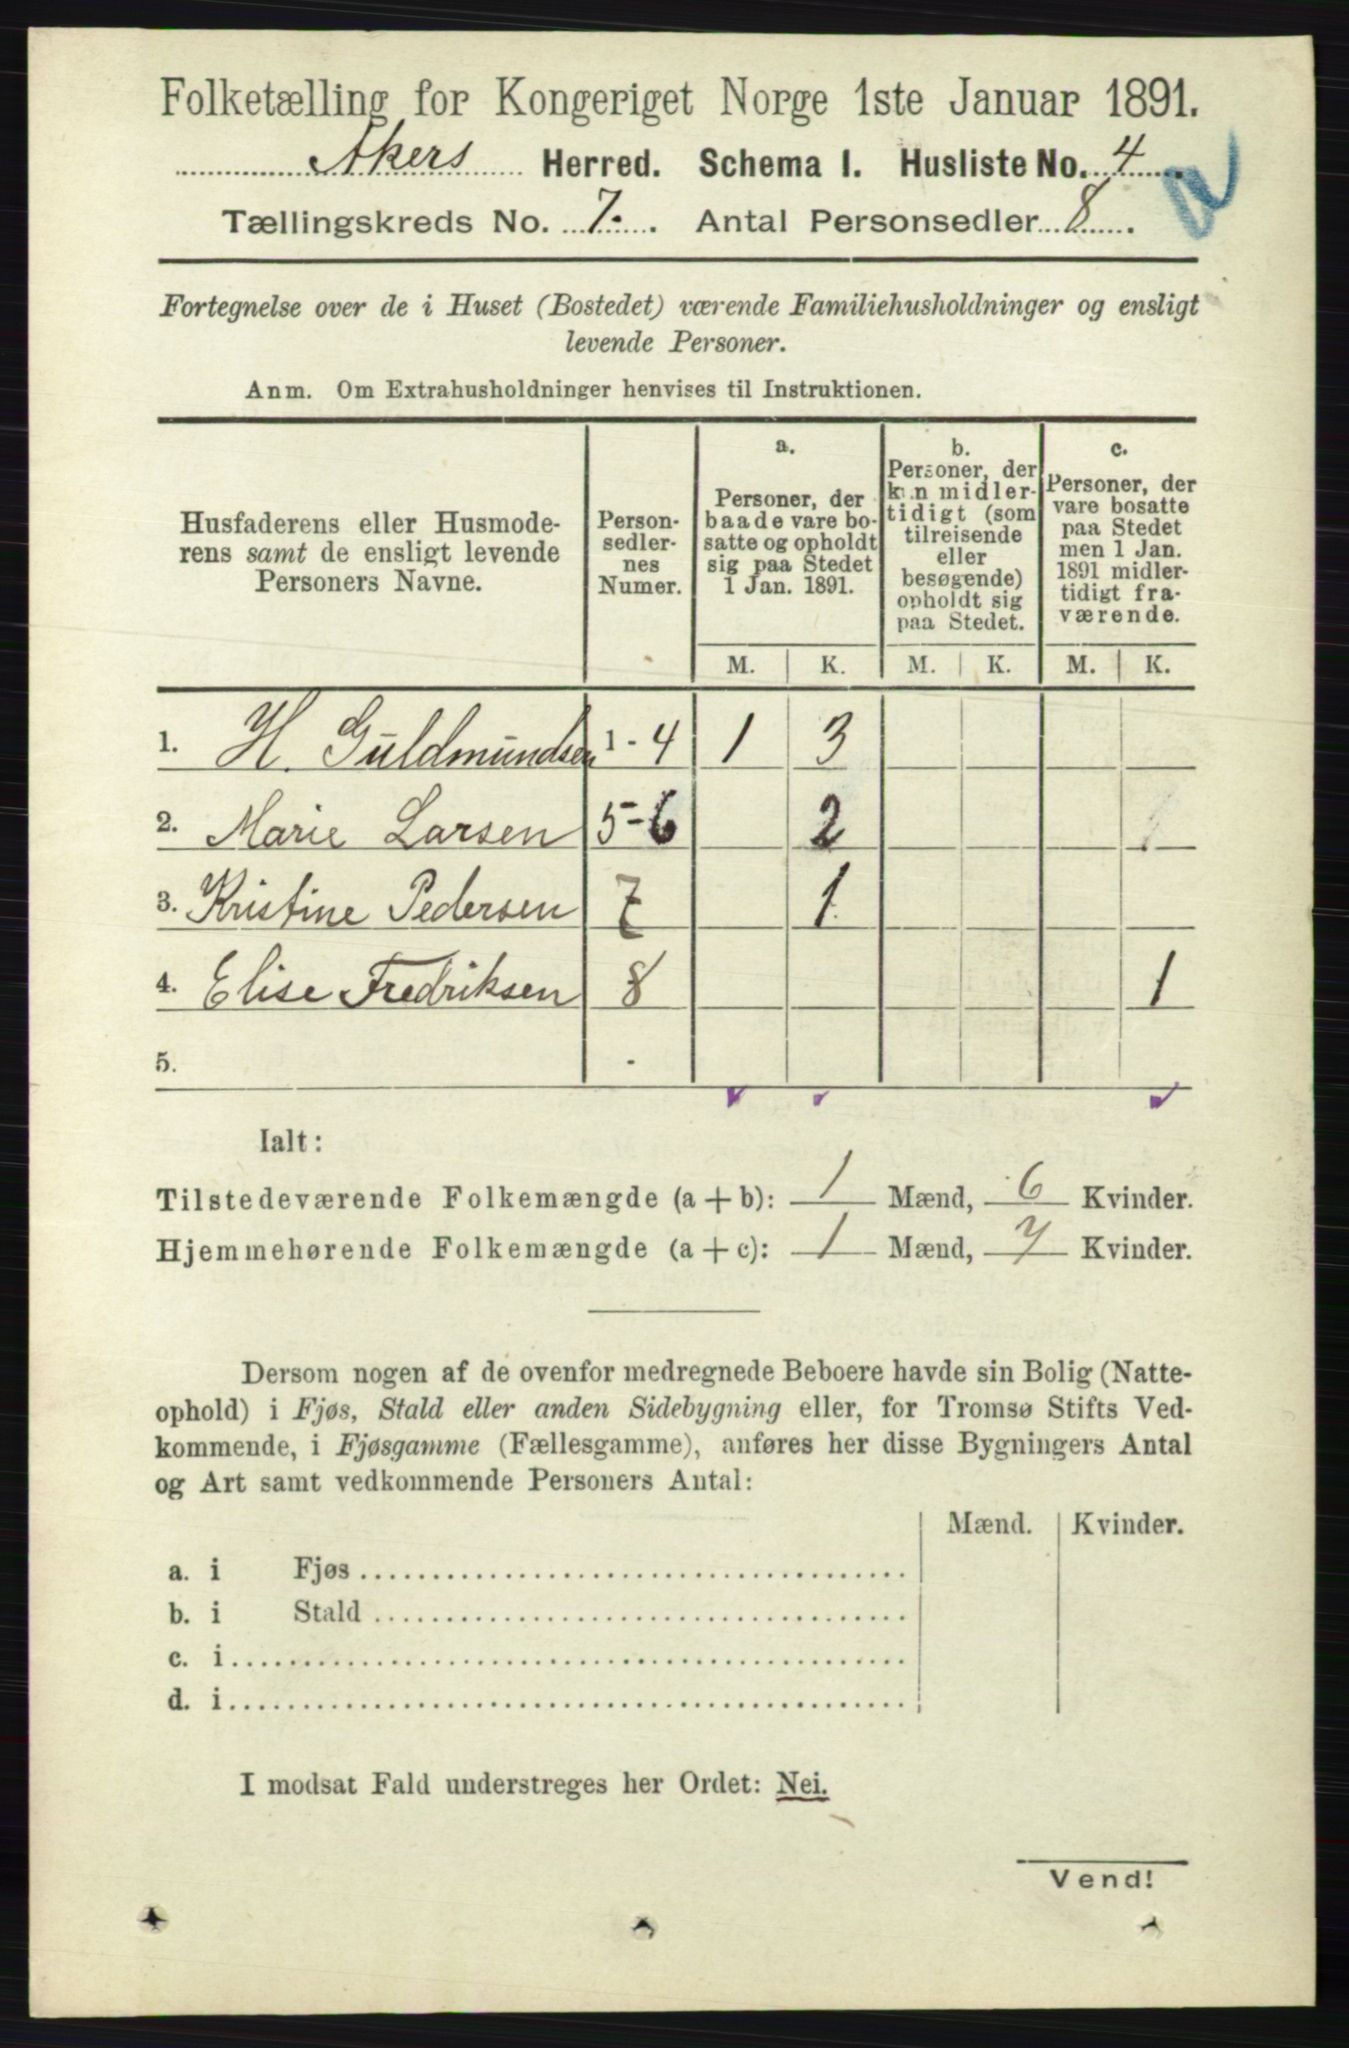 Folketælling for Kongeriget Norge 1ste Januar 1891.
Akers Herred. Schema I. Husliste No. 4
a
Tællingskreds No. 7. Antal Personsedler 8.
Fortegnelse over de i Huset (Bostedet) værende Familiehusholdninger og ensligt
levende Personer.
Anm. Om Extrahusholdninger henvises til Instruktionen.
Husfaderens eller Husmode-
rens samt de ensligt levende
Personers Navne.
Person-
sedler-
nes
Numer.
a.
Personer, der
baade vare bo-
satte og opholdt
sig paa Stedet
1 Jan. 1891.
b.
Personer, der
kun midler-
tidigt (som
tilreisende
eller
besøgende)
opholdt sig
paa Stedet.
c.
Personer, der
vare bosatte
paa Stedet
men 1 Jan.
1891 midler-
tidigt fra-
værende.
M. K. M. K. M. K.
1. H. Guldmundsen 1 - 4 1 3
2. Marie Larsen 5-6 2
3. Kristine Pedersen 7 1
4. Elise Fredriksen 8 1
5. -
Ialt:
Tilstedeværende Folkemængde (a + b): 1 Mænd, 6 Kvinder.
Hjemmehørende Folkemængde (a + c): 1 Mænd, 7 Kvinder.
Dersom nogen af de ovenfor medregnede Beboere havde sin Bolig (Natte-
ophold) i Fjøs, Stald eller anden Sidebygning eller, for Tromsø Stifts Ved-
kommende, i Fjøsgamme (Fællesgamme), anføres her disse Bygningers Antal
og Art samt vedkommende Personers Antal:
Mænd. Kvinder.
a. i Fjøs
b. i Stald
c. i
d. i
I modsat Fald understreges her Ordet: Nei.
Vend!